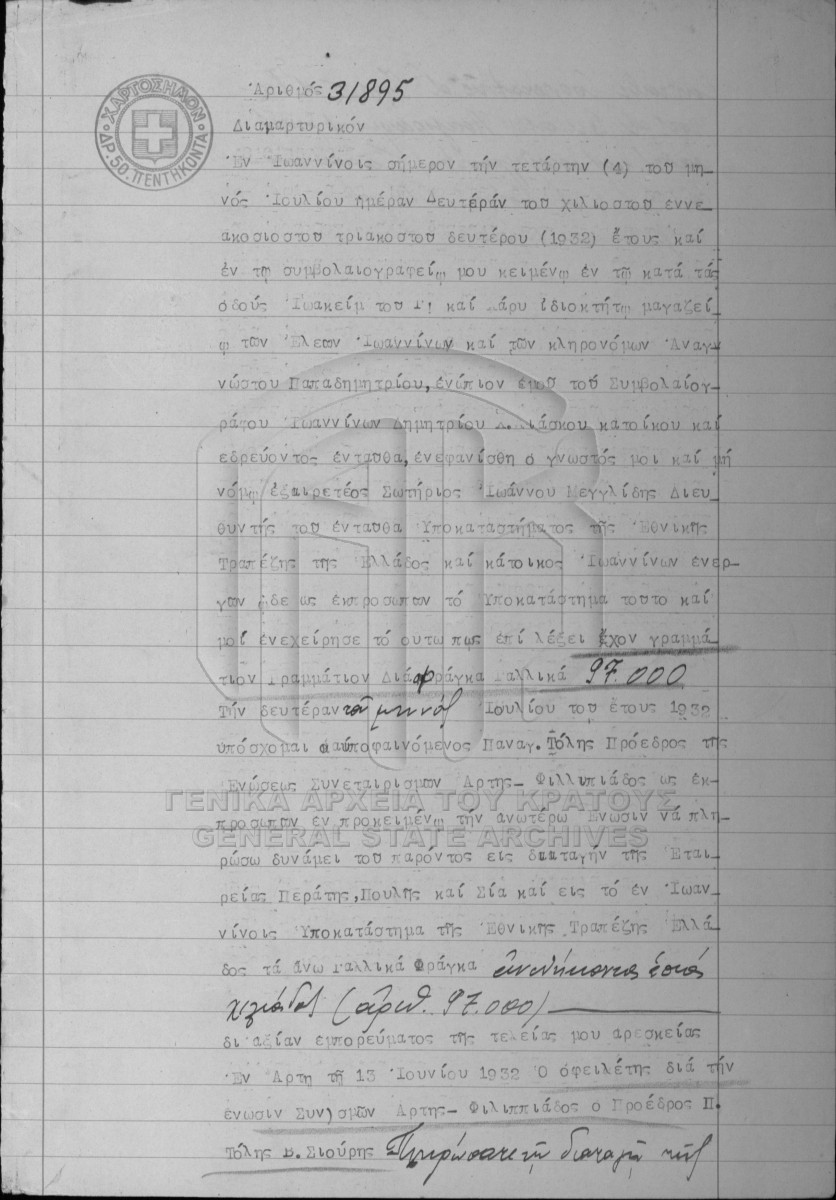 Αριθμός 31895
ΧΑΡΤΟΣΗΜΟΝ
ΔΡ. 50. ΠΕΝΤΗΚΟΝΤΑ
Διαμαρτυρικόν
Εν Ιωαννίνοις σήμερον τήν τετάρτην (4) του μη-
νός Ιουλίου ημέραν Δευτέραν του χιλιοστού εννε-
ακοσιοστού τριακοστού δευτέρου (1932) έτους καί
έν τω συμβολαιογραφείω μου κειμένω έν τω κατά τάς
οδούς Ιωακείμ του Γ! καί ιδιοκτήτω μαγαζεί-
ω των Ελεων Ιωαννίνων καί των κληρονόμων Αναγ-
νώστου Παπαδημητρίου, ενώπιον έμού τού Συμβολαιογ-
ράφου Ιωαννίνων Δημητρίου κατοίκου καί
εδρεύοντος ένταυθα, ενεφανίσθη ο γνωστός μοι καί μή
νόμω εξαιρετέος Σωτήριος Ιωάννου Μεγγλίδης Διευ-
θυντής του ένταυθα Υποκαταστήματος της Εθνικής
Τραπέζης της Ελλάδος καί κάτοικος Ιωαννίνων ένερ-
γων ώδε ως έκπροσωπων τό Υποκατάστημα τουτο καί
μοί ένεχείρησε τό ουτω πως επί λέξει έχον γραμμά-
τιον Γραμμάτιον Διά φράγκα Γαλλικά 97.000
Τήν δευτέραν του μηνός Ιουλίου του έτους 1932
υπόσχομαι ο υποφαινόμενος Παναγ. Τόλης Πρόεδρος της
Ενώσεως Συνεταιρισμων Αρτης- Φιλλιπιάδος ως έκ-
προσωπων έν προκειμένω τήν ανωτέρω Ενωσιν νά πλη-
ρώσω δυνάμει του παρόντος εις διαταγήν της Εται-
ρείας Περάτης, Πουλής καί Σία καί εις τό έν Ιωαν-
νίνοις Υποκατάστημα της Εθνικής Τραπέζης Ελλά-
δος τά άνω Γαλλικά Φράγκα ένενήκοντα επτά
χιλιάδας (άριθ. 97.000)
δι αξίαν εμπορεύματος της τελείας μου αρεσκείας
Εν Αρτη τη 13 Ιουνίου 1932 Ο οφειλέτης διά τήν
ένωσιν Συν)σμών Αρτης- Φιλιππιάδος ο Πρόεδρος Π.
Τόλης Β. Σιούρης Πληρώσατε εις διαταγήν της
ΓΕΝΙΚΑ ΑΡΧΕΙΑ ΤΟΥ ΚΡΑΤΟΥΣ
GENERAL STATE ARCHIVES